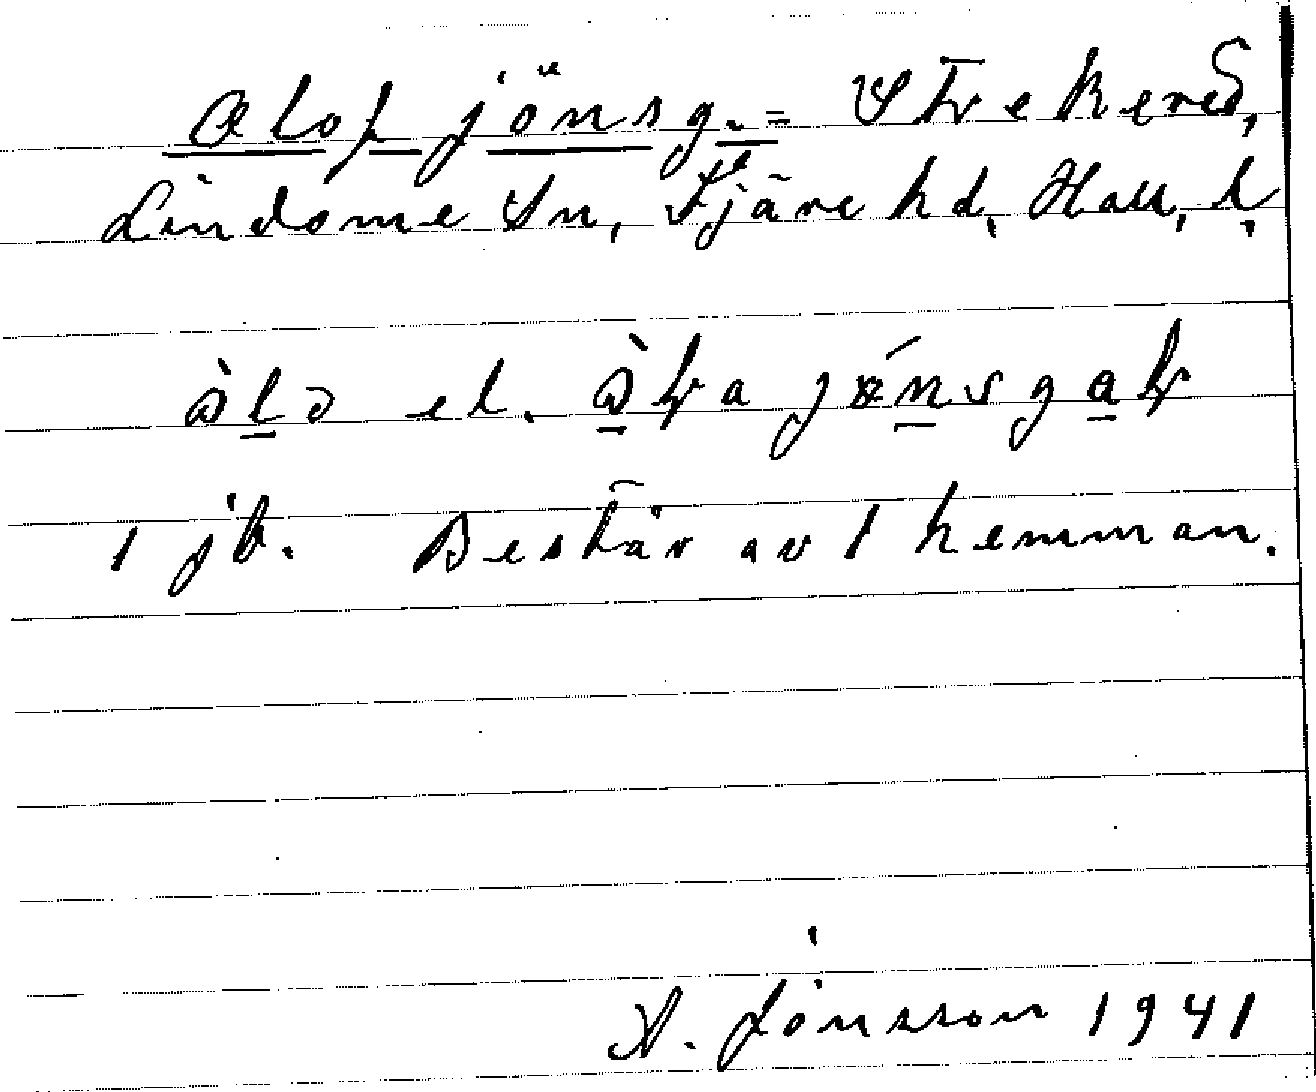 Olof jönsg. = Strekered,
Lindome Sn, Fjäre hd, Hall, l.
el.
1 jb. Består av 1 hemman.
A. Jönsson 1941